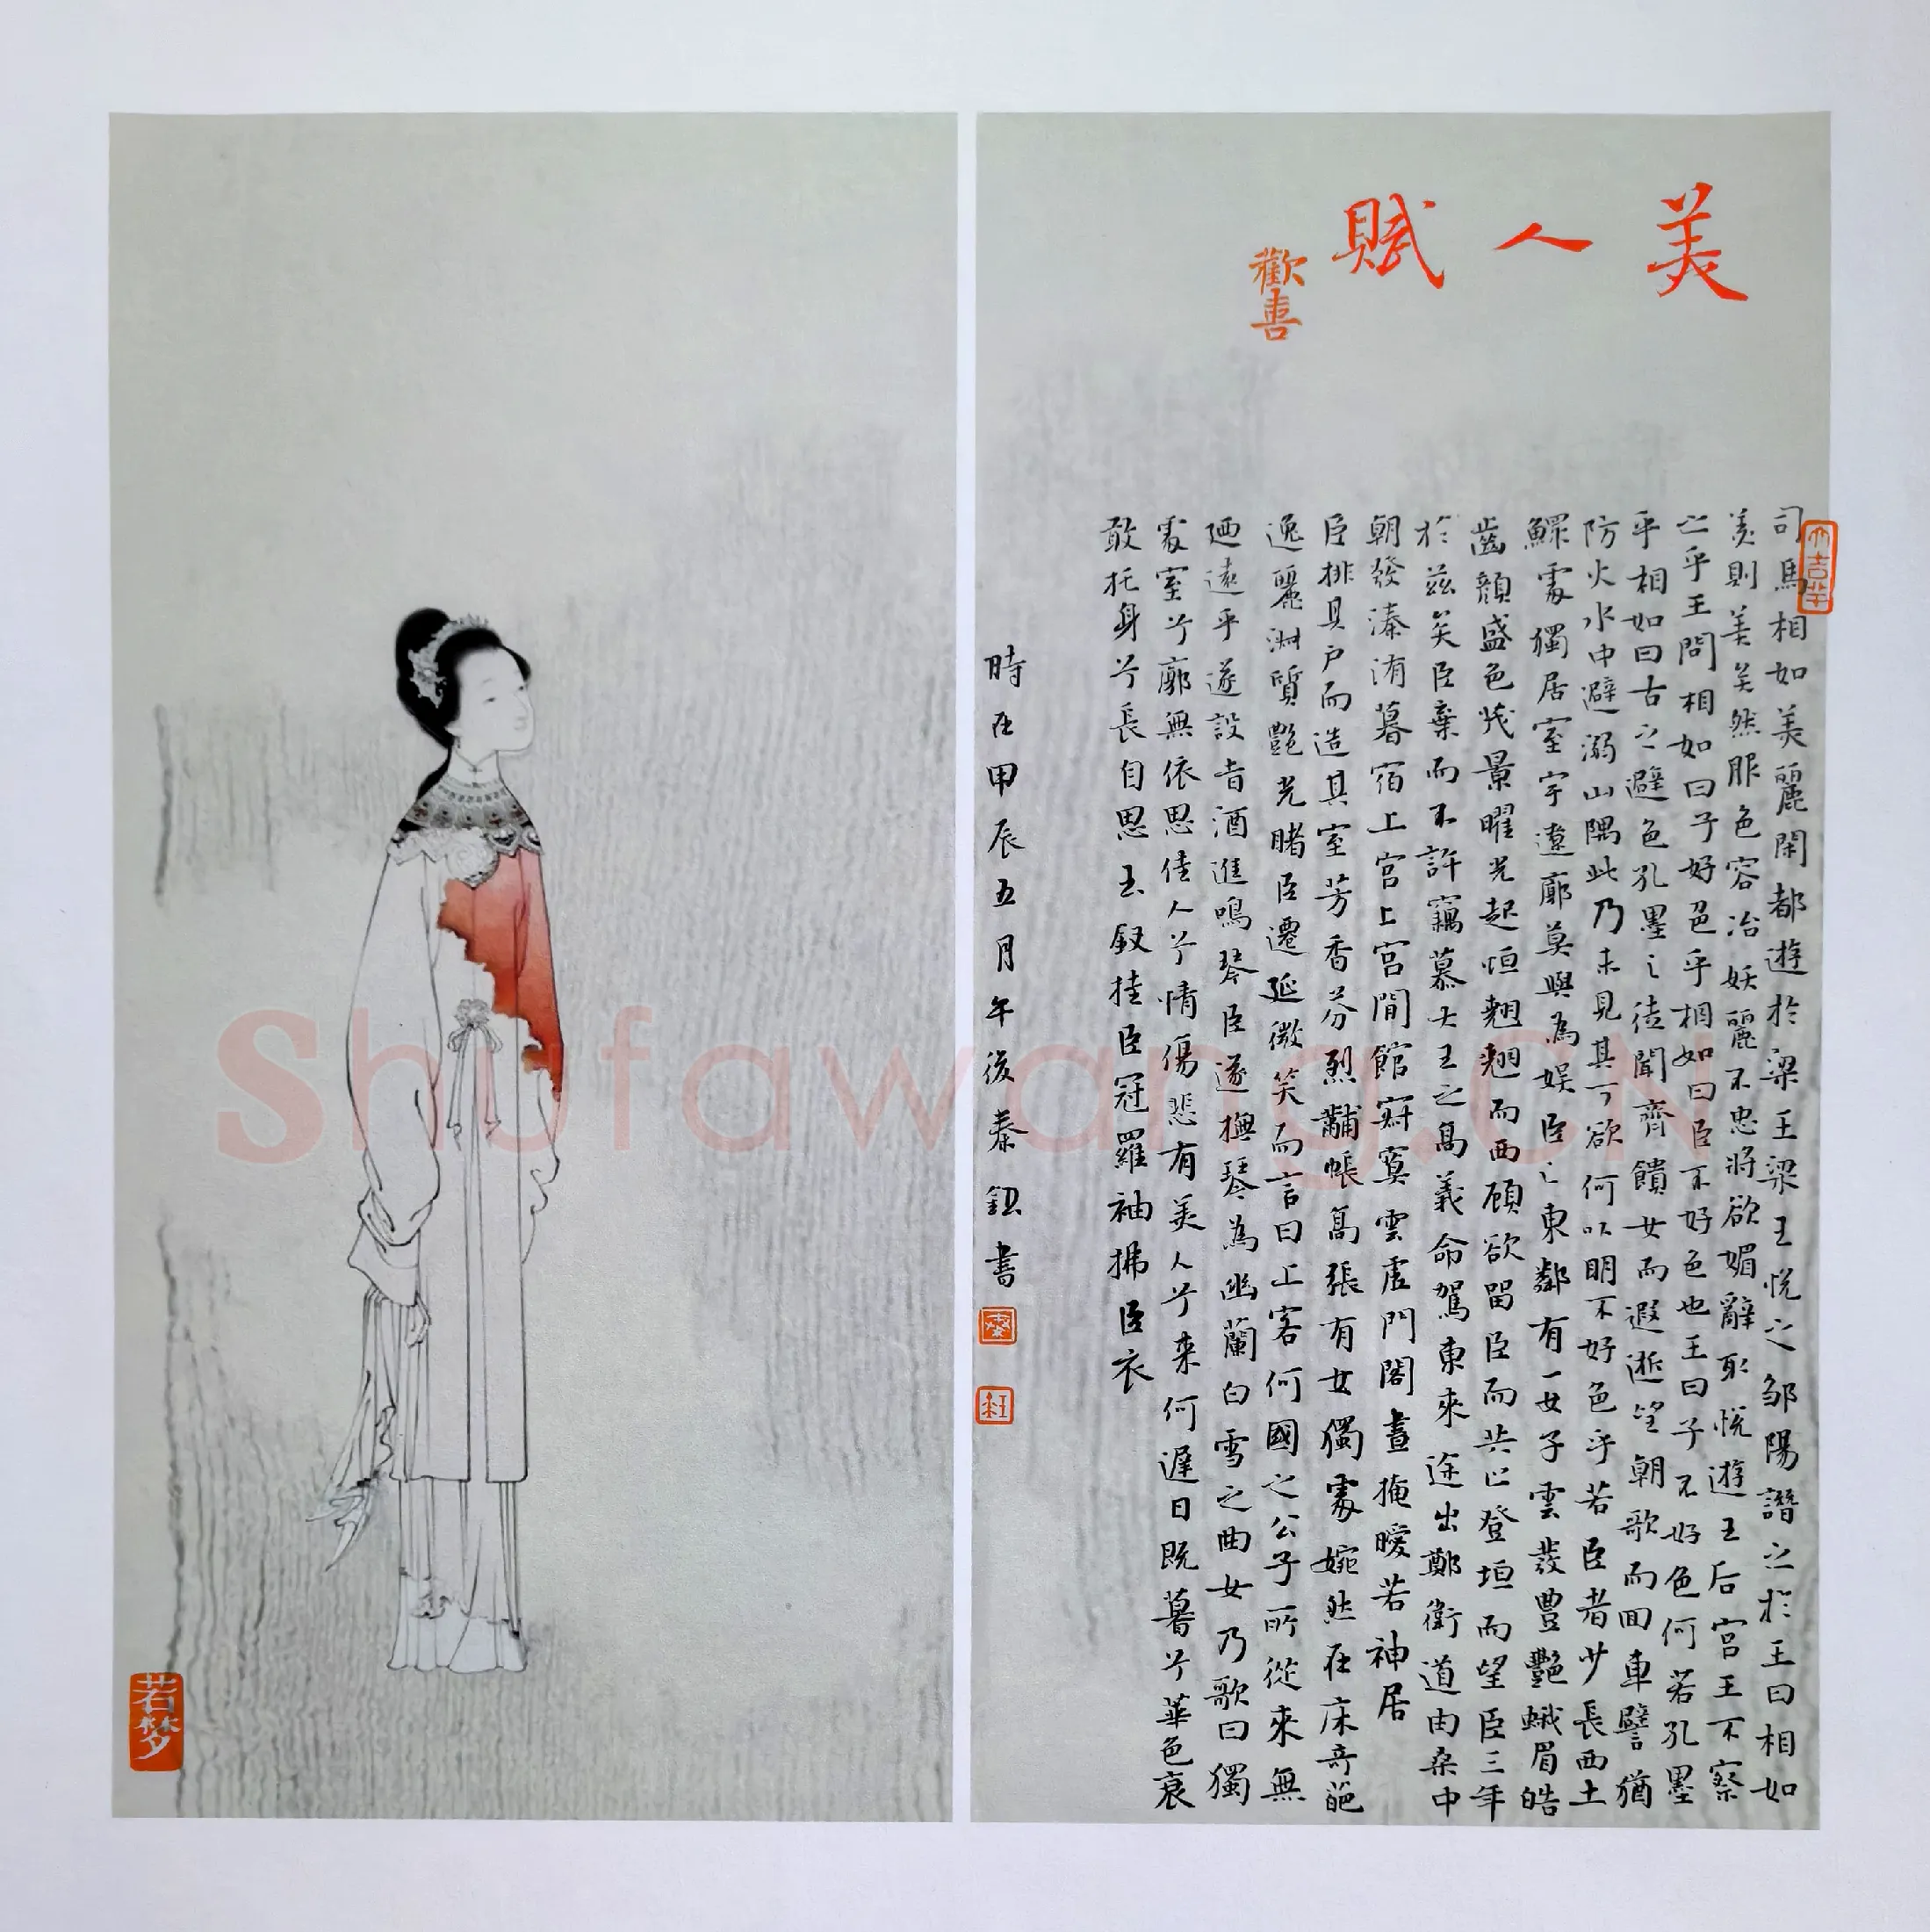 美人賦
歡喜
司馬相如美麗閑都遊於梁王梁王悅之邹陽譖之於王曰相如
美則美矣然服色容冶妖麗不忠將欲媚辭取悅遊王后宮王不察
之乎王問相如曰子好色乎相如曰臣不好色也王曰子不好色何若孔墨
乎相如曰古之避色孔墨之徒聞齊饋女而遐逝望朝歌而回車譬猶
防火水中避溺山隅此乃未見其可欲何以明不好色乎若臣者少長西土
鰥處獨居室宇遼廓莫與為娛臣之東鄰有一女子雲髮豐艷蛾眉皓
齒顏盛色茂景曜光起恒翹翹而西顾欲留臣而共止登垣而望臣三年
於茲矣臣棄而不許竊慕大王之高義命駕東來途出鄭衛道由桑中
朝發溱洧暮宿上宮上宮閒館寂寞雲虛門閣晝掩曖若神居
臣排其户而造其室芳香芬烈黼帳高張有女獨處婉然在床奇葩
逸麗淑質艷光睹臣遷延微笑而言曰上客何國之公子所從來無
廼遠乎遂設旨酒進鳴琴臣遂撫琴為幽蘭白雪之曲女乃歌曰獨
處室兮廓無依思佳人兮情傷悲有美人兮来何遲日既暮兮華色衰
敢托身兮長自思玉釵挂臣冠羅袖拂臣衣
時在甲辰五月午後秦鈕書
大吉羊
若梦
Shufawang.CN